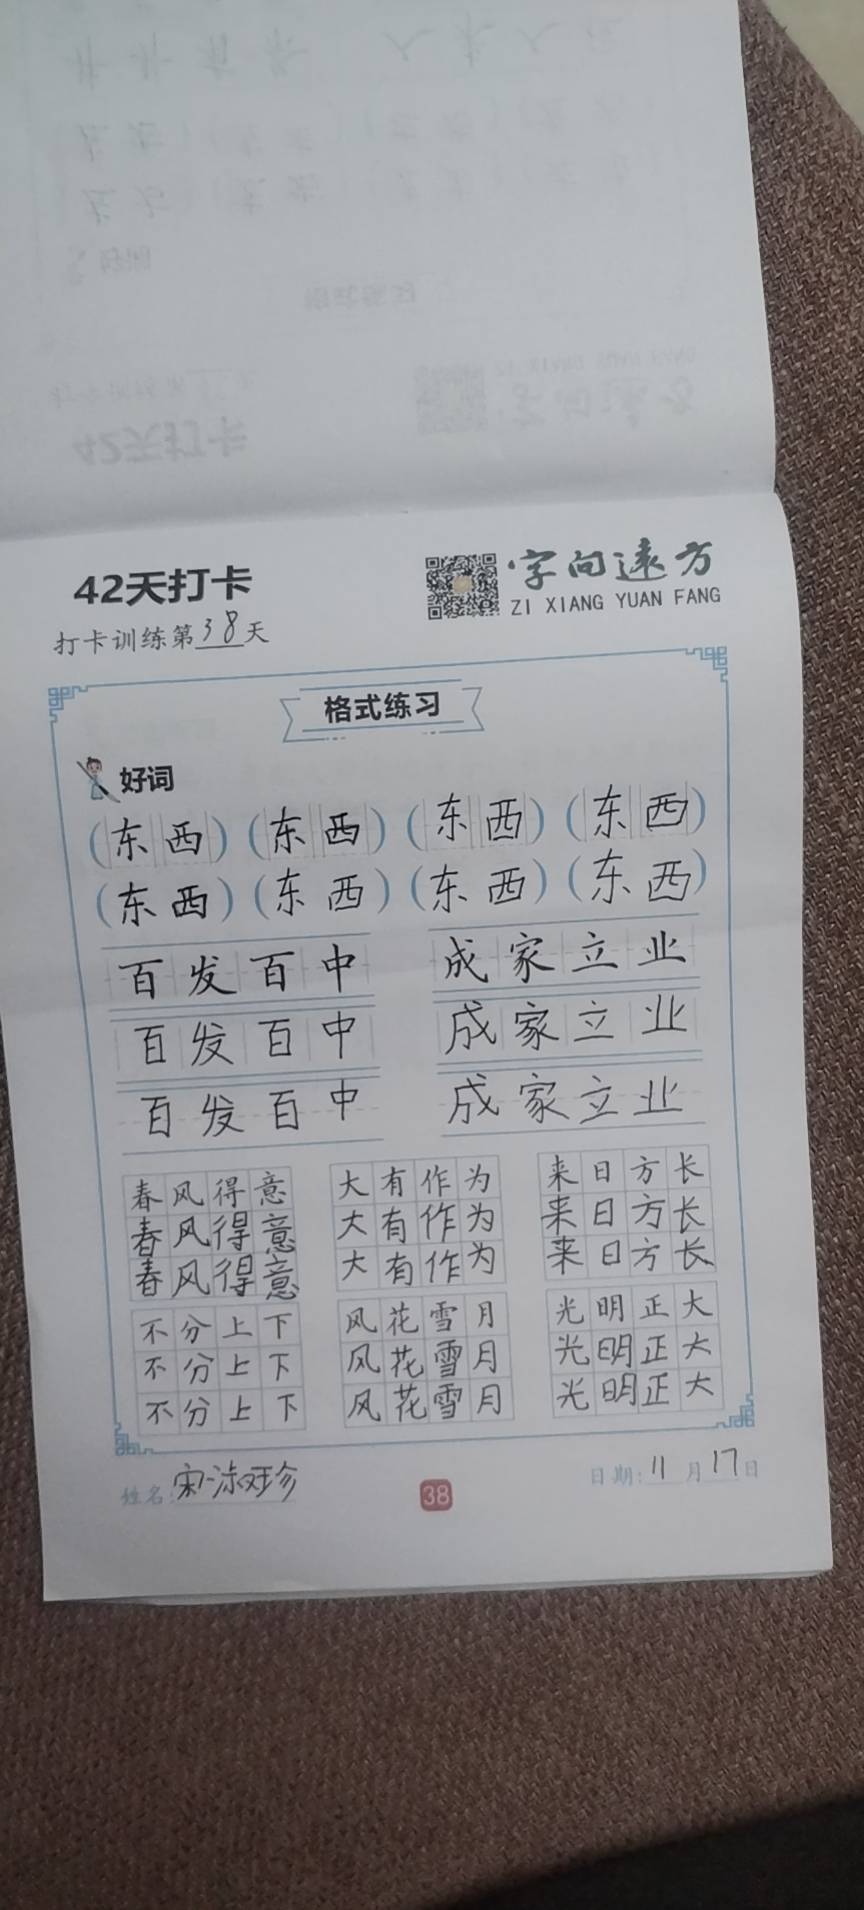 42天打卡
字向远方
ZI XIANG YUAN FANG
打卡训练第38天
格式练习
好词
(东西)(东西)(东西)(东西)
(东西)(东西)(东西)(东西)
百发百中 成家立业
百发百中 成家立业
百发百中 成家立业
春风得意 大有作为 来日方长
春风得意 大有作为 来日方长
春风得意 大有作为 来日方长
不分上下 风花雪月 光明正大
不分上下 风花雪月 光明正大
不分上下 风花雪月 光明正大
姓名:宋淑珍 日期:11月17日
38